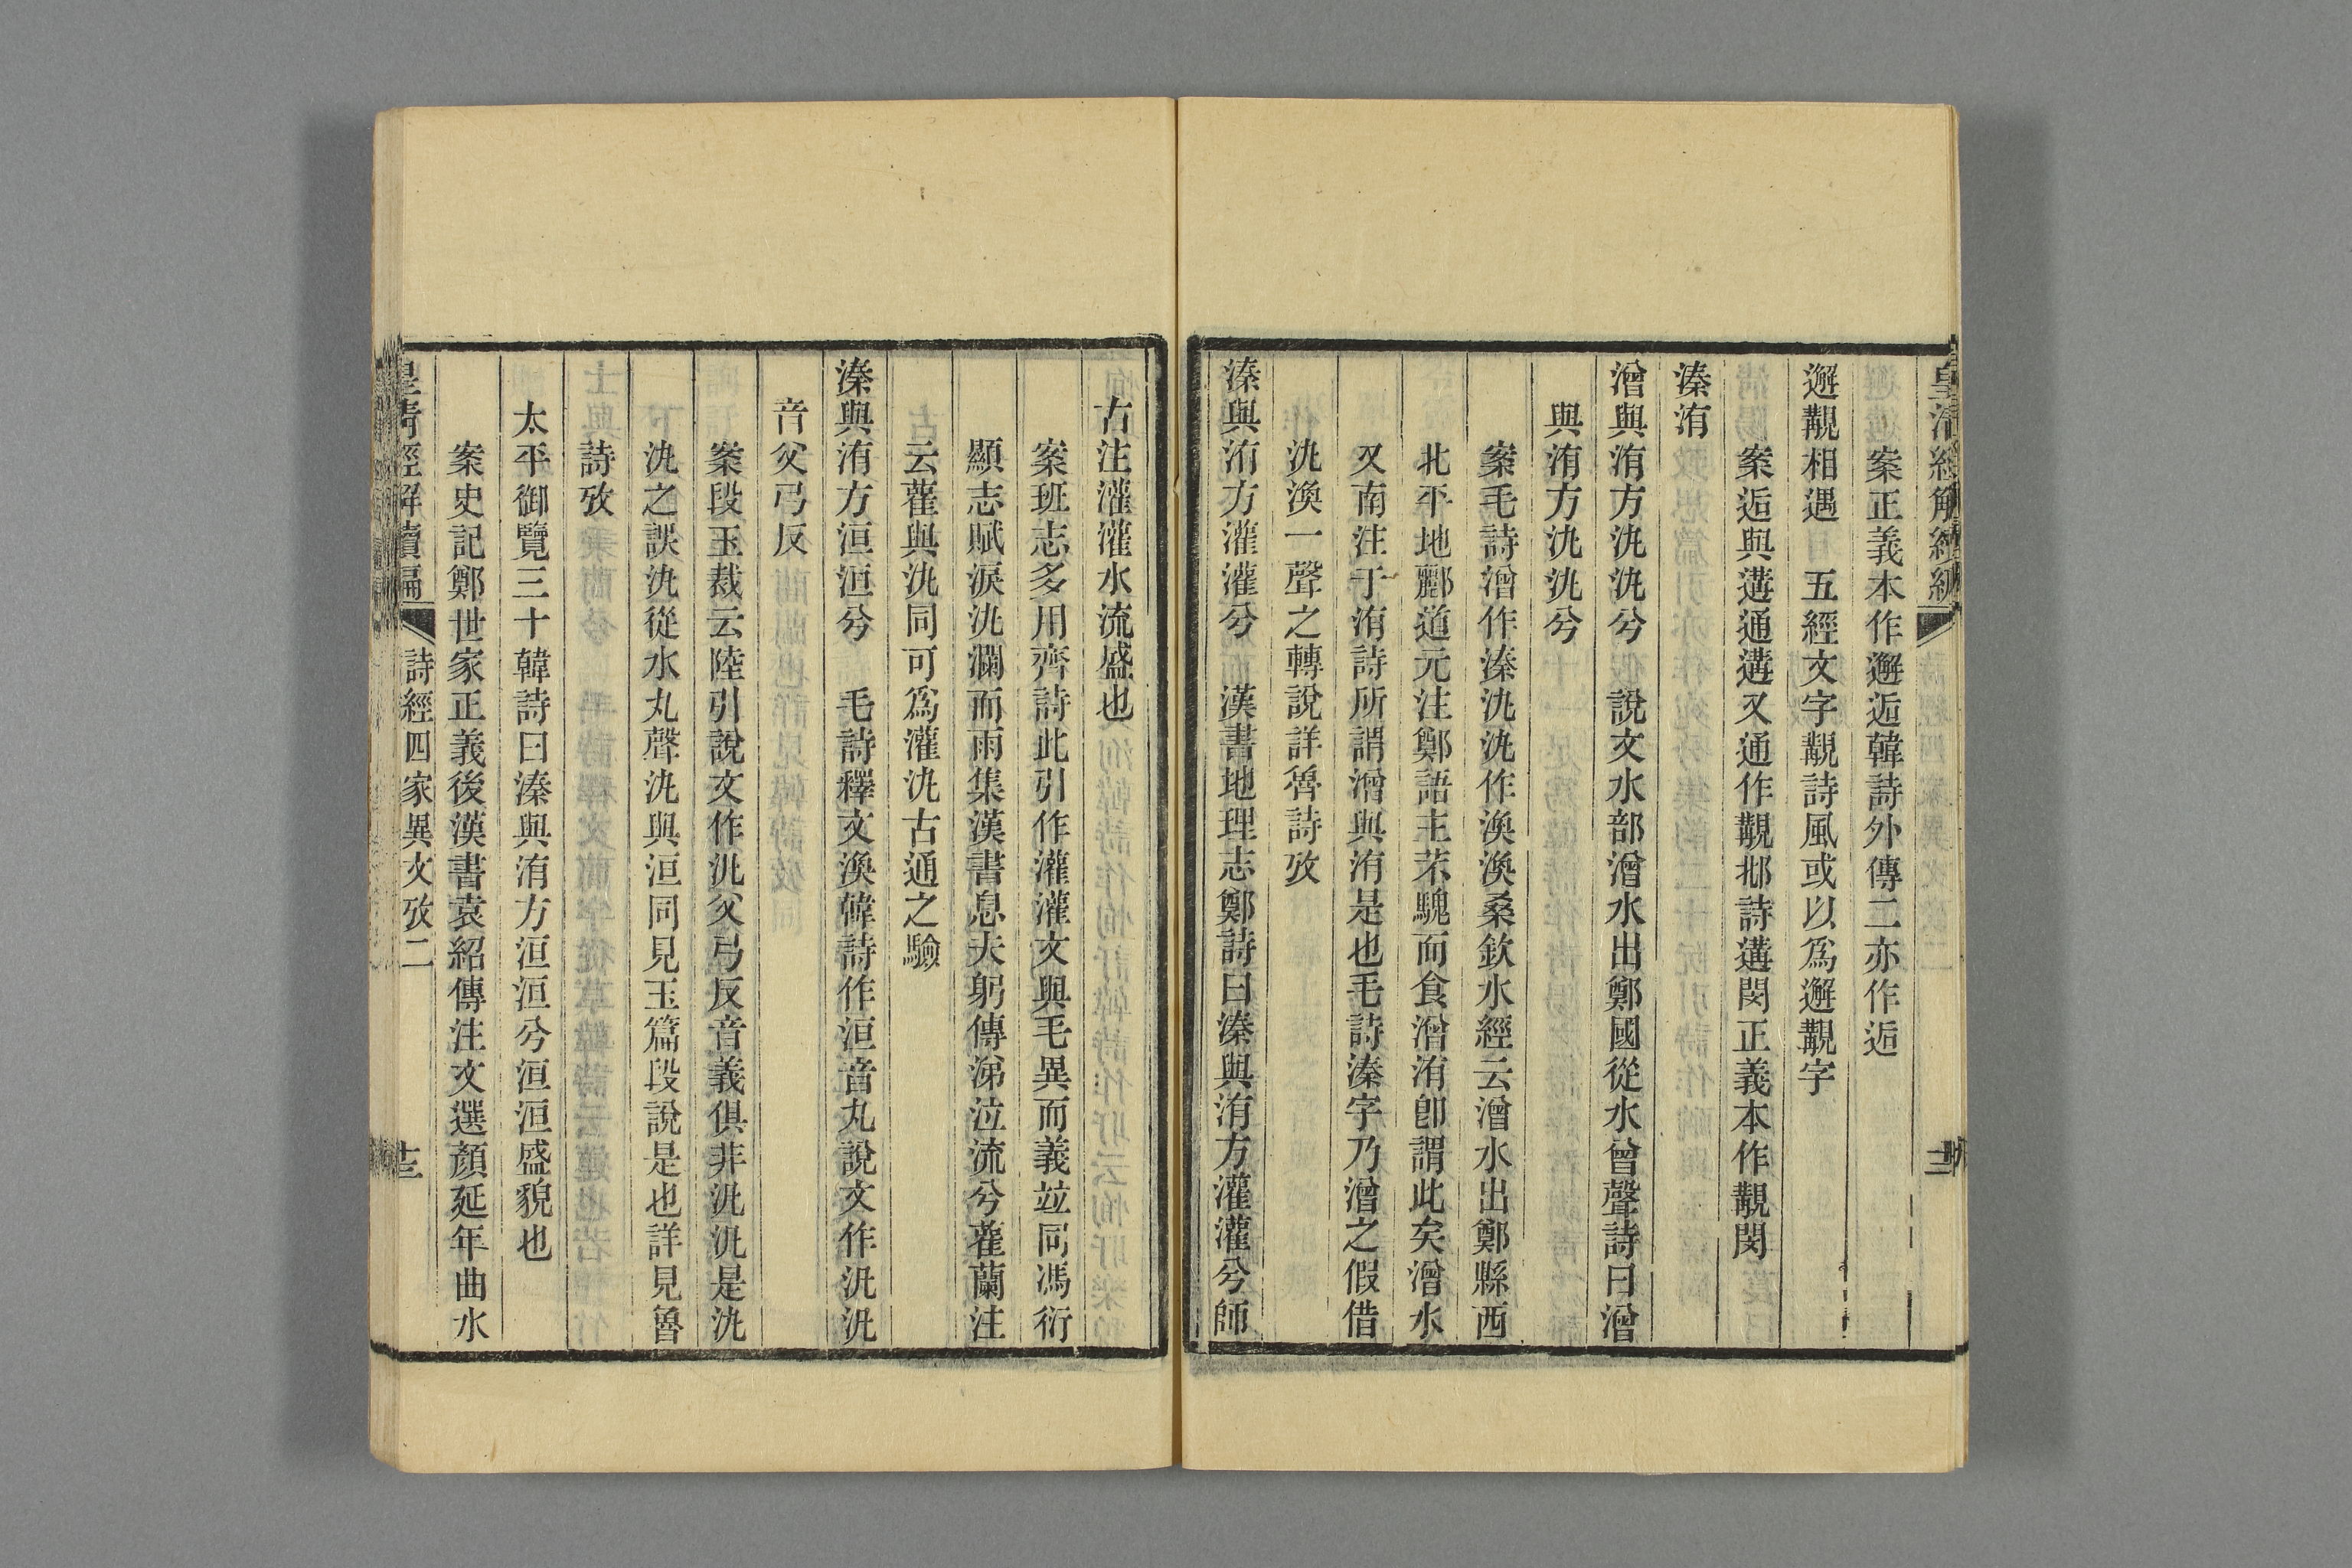 皇清經解續編
案正義本作邂逅韓詩外傳二亦作逅
邂覯相遇　五經文字覯詩風或以爲邂覯字
案逅與遘通遘又通作覯邶詩遘閔正義本作覯閔
溱洧
潧與洧方汍汍兮　說文水部潧水出鄭國從水曾聲詩曰潧
與洧方汍汍兮
案毛詩潧作溱汍汍作渙渙桑欽水經云潧水出鄭縣西
北平地酈道元注鄭語主芣騩而食潧洧卽謂此矣潧水
又南注于洧詩所謂潧與洧是也毛詩溱字乃潧之假借
汍渙一聲之轉說詳魯詩攷
溱與洧方灌灌兮　漢書地理志鄭詩曰溱與洧方灌灌兮師
古注灌灌水流盛也
案班志多用齊詩此引作灌灌文與毛異而義竝同馮衍
顯志賦淚汍瀾而雨集漢書息夫躬傳涕泣流兮雚蘭注
云雚與汍同可爲灌汍古通之驗
溱與洧方洹洹兮　毛詩釋文渙韓詩作洹音丸說文作汎汎
音父弓反
案段玉裁云陸引說文作汎父弓反音義俱非汎汎是汍
汍之誤汍從水丸聲汍與洹同見玉篇段說是也詳見魯
詩攷
太平御覽三十韓詩曰溱與洧方洹洹兮洹洹盛貌也
案史記鄭世家正義後漢書袁紹傳注文選顏延年曲水
皇清經解續編　詩經四家異文攷二　十三